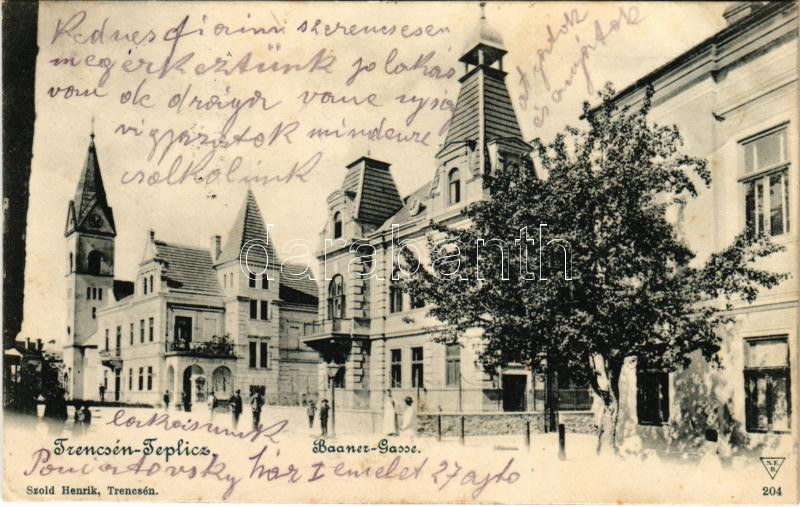 Kedves fiaim szerencsésen
megérkeztünk jo lakás
van de drága vane ujság
vigyázatok mindenre
csolkolunk
atyátok
és anyátok
darabanth
lakásunk
Trencsén-Teplicz.
Baaner-Gasse.
Poniatovsky ház I emelet 27 ajto
Szold Henrik, Trencsén.
S.E.B.
204